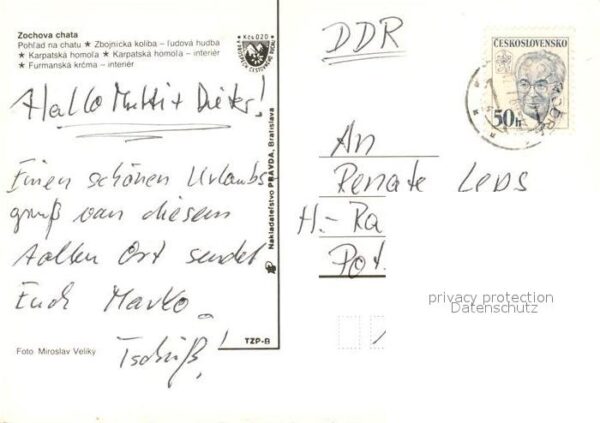 Zochova chata
Pohľad na chatu ★ Zbojnícka koliba – ľudová hudba
★ Karpatská homoľa ★ Karpatská homoľa – interiér
★ Furmanská krčma – interiér
Kčs 020
Hallo Mutti + Dieter!
Einen schönen Urlaubs-
gruß von diesem
tollen Ort sendet
Euch Marko.
Tschüß!
Foto Miroslav Veliky
Nakladateľstvo PRAVDA, Bratislava
TZP-B
DDR
ČESKOSLOVENSKO
50h
An
Renate Leps
H.-Ra
Pot.
privacy protection
Datenschutz